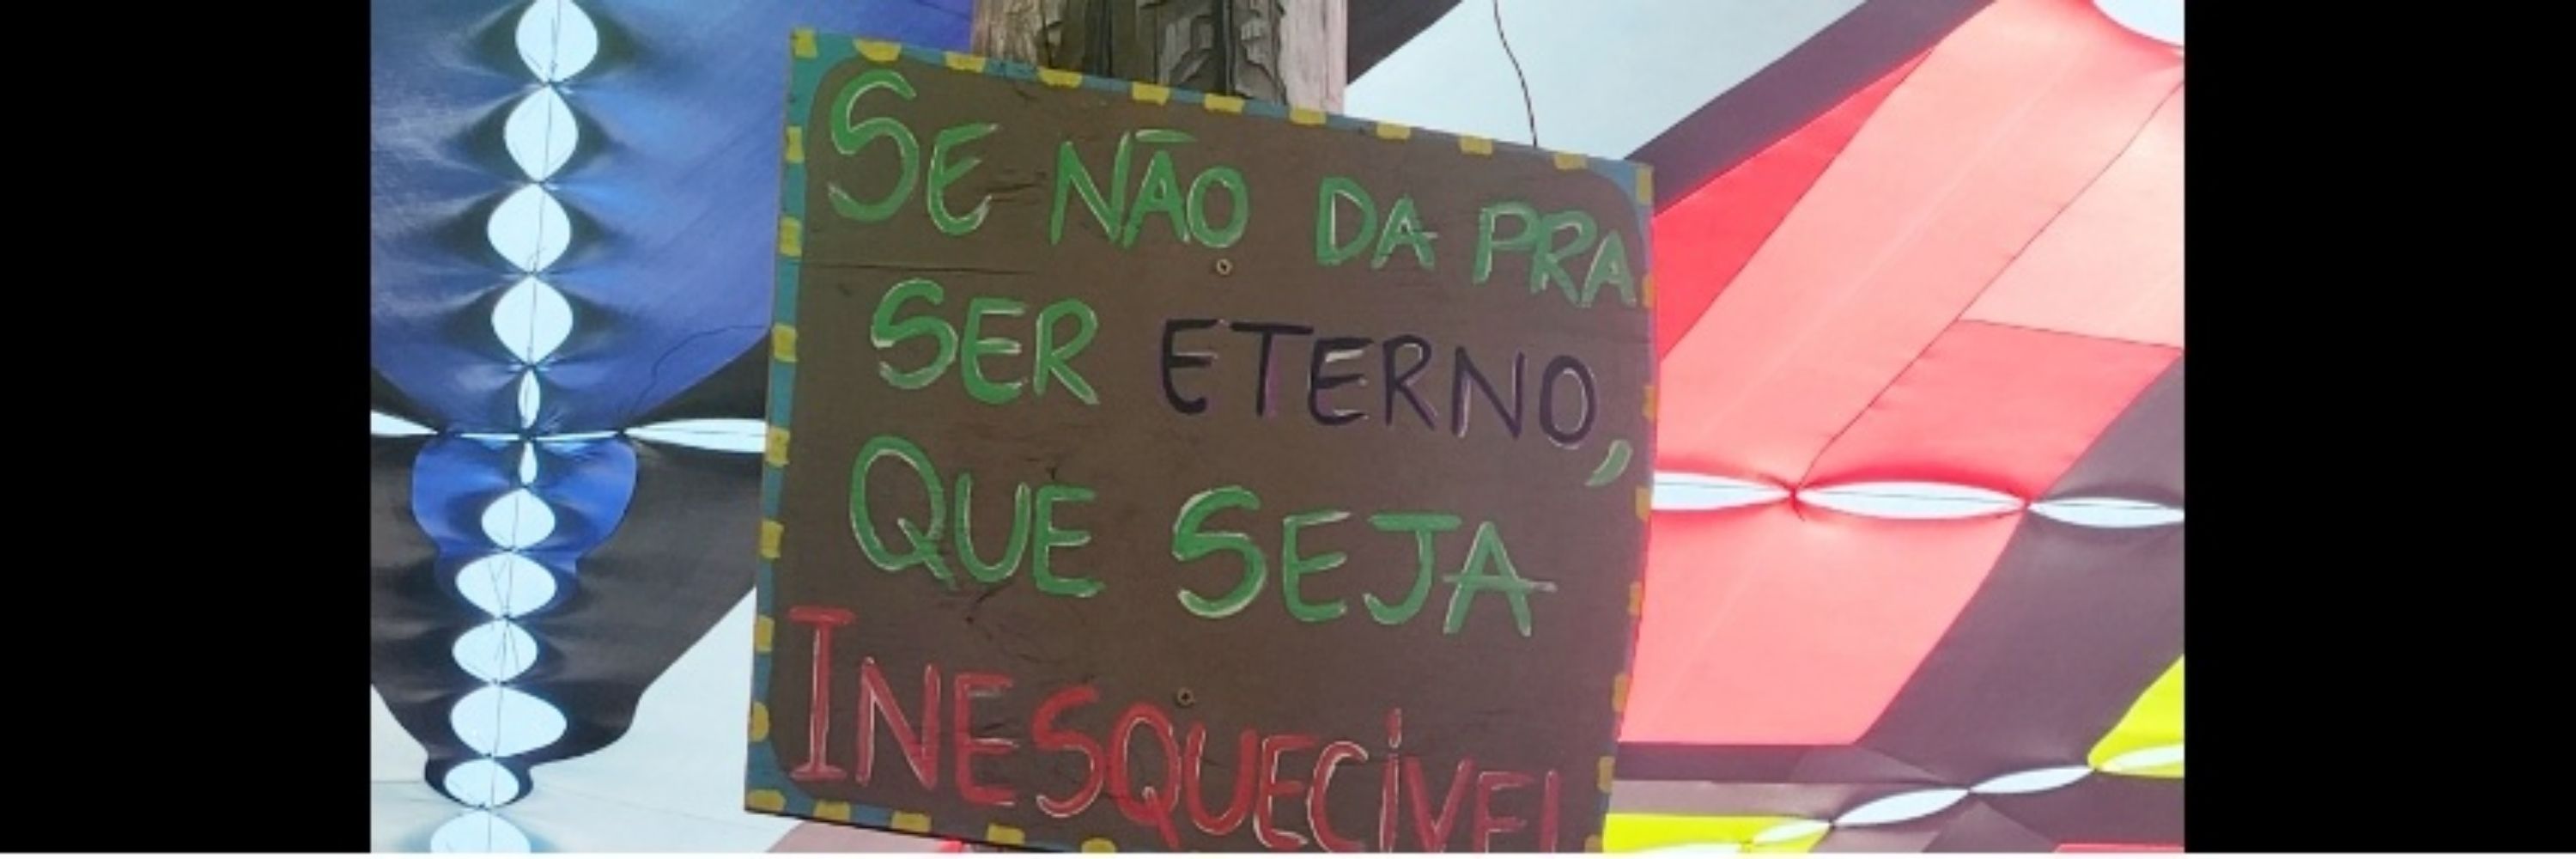 SE NÃO DA PRA
SER ETERNO,
QUE SEJA
INESQUECÍVEL